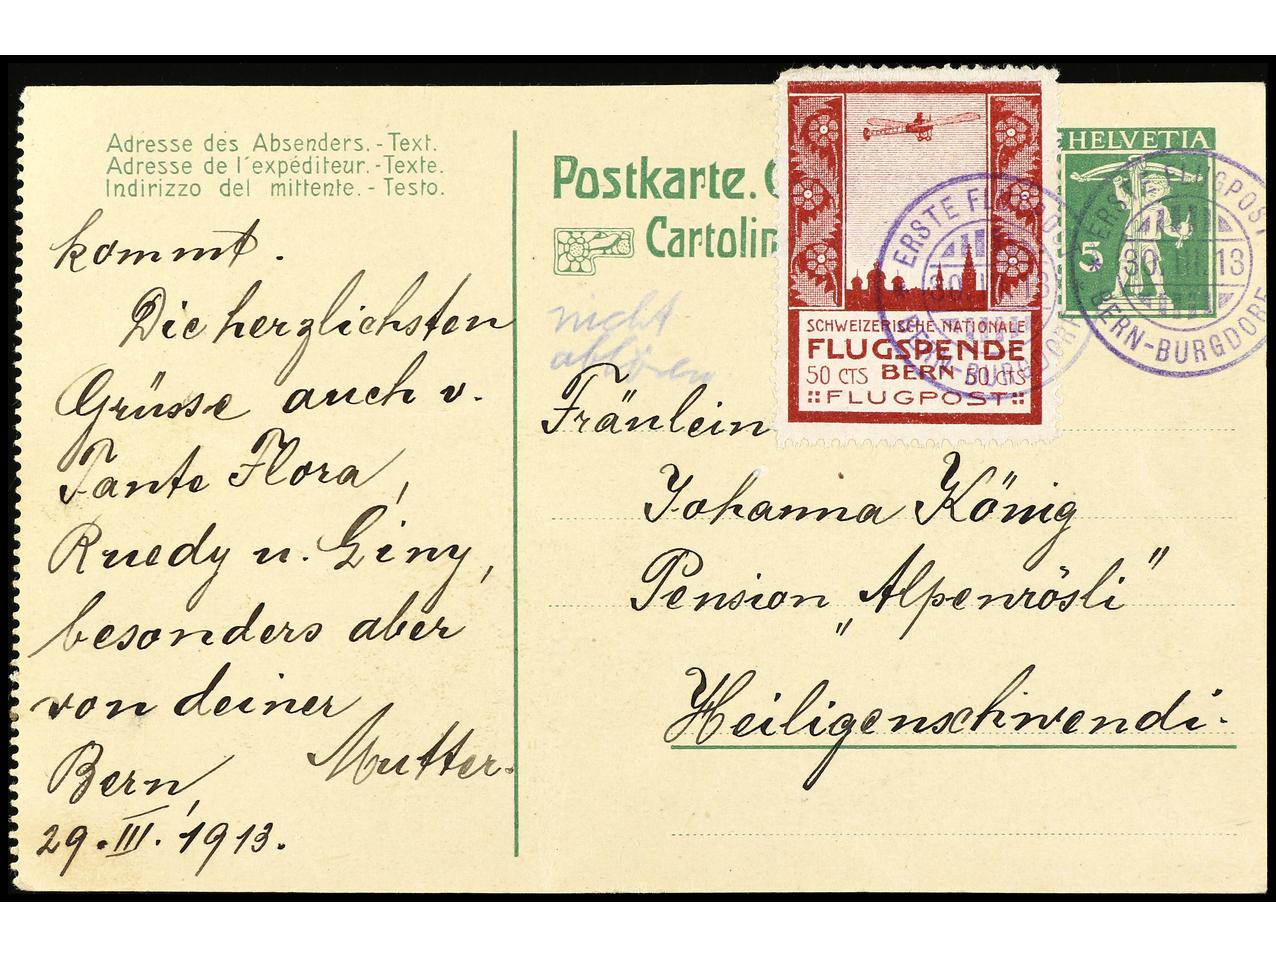 Adresse des Absenders.-Text.
Adresse de l'expéditeur.-Texte.
Indirizzo del mittente.-Testo.
kommt.
Die herzlichsten
Grüsse auch v.
Tante Flora,
Ruedy u. Giny,
besonders aber
von deiner
Mutter.
Bern,
29.III.1913.
Postkarte. C
Cartolin
nicht
ablösen
SCHWEIZERISCHE NATIONALE
FLUGSPENDE
50 CTS BERN 50 CTS
FLUGPOST
HELVETIA
5
ERSTE FLUGPOST
30.III.13
BERN-BURGDORF
ERSTE FLUGPOST
30.III.13
BERN-BURGDORF
Fräulein
Johanna König
Pension „Alpenrösli"
Heiligenschwendi.